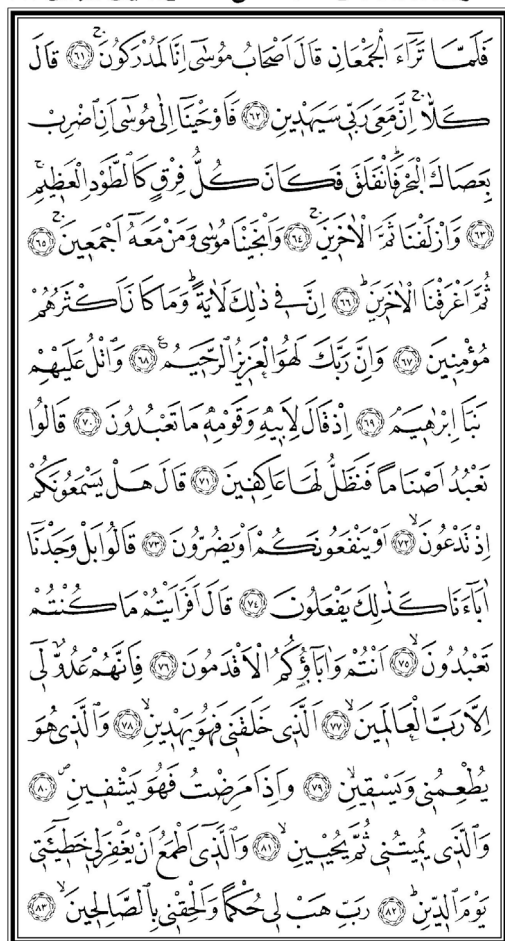 فَلَمَّا تَرَٓاءَ الْجَمْعَانِ قَالَ اَصْحَابُ مُوسٰٓى اِنَّا لَمُدْرَكُونَۚ ﴿٦١﴾ قَالَ
كَلَّاۚ اِنَّ مَعِيَ رَبّ۪ي سَيَهْد۪ينِ ﴿٦٢﴾ فَاَوْحَيْنَٓا اِلٰى مُوسٰٓى اَنِ اضْرِبْ
بِعَصَاكَ الْبَحْرَۜ فَانْفَلَقَ فَكَانَ كُلُّ فِرْقٍ كَالطَّوْدِ الْعَظ۪يمِۚ
﴿٦٣﴾ وَاَزْلَفْنَا ثَمَّ الْاٰخَر۪ينَۚ ﴿٦٤﴾ وَاَنْجَيْنَا مُوسٰى وَمَنْ مَعَهُٓ اَجْمَع۪ينَۚ ﴿٦٥﴾
ثُمَّ اَغْرَقْنَا الْاٰخَر۪ينَۜ ﴿٦٦﴾ اِنَّ ف۪ي ذٰلِكَ لَاٰيَةًۜ وَمَا كَانَ اَكْثَرُهُمْ
مُؤْمِن۪ينَ ﴿٦٧﴾ وَاِنَّ رَبَّكَ لَهُوَ الْعَز۪يزُ الرَّح۪يمُ۟ ﴿٦٨﴾ وَاتْلُ عَلَيْهِمْ
نَبَاَ اِبْرٰه۪يمَۢ ﴿٦٩﴾ اِذْ قَالَ لِاَب۪يهِ وَقَوْمِه۪ مَا تَعْبُدُونَ ﴿٧٠﴾ قَالُوا
نَعْبُدُ اَصْنَامًا فَنَظَلُّ لَهَا عَاكِف۪ينَ ﴿٧١﴾ قَالَ هَلْ يَسْمَعُونَكُمْ
اِذْ تَدْعُونَۙ ﴿٧٢﴾ اَوْ يَنْفَعُونَكُمْ اَوْ يَضُرُّونَ ﴿٧٣﴾ قَالُوا بَلْ وَجَدْنَٓا
اٰبَٓاءَنَا كَذٰلِكَ يَفْعَلُونَ ﴿٧٤﴾ قَالَ اَفَرَاَيْتُمْ مَا كُنْتُمْ
تَعْبُدُونَۙ ﴿٧٥﴾ اَنْتُمْ وَاٰبَٓاؤُكُمُ الْاَقْدَمُونَ ﴿٧٦﴾ فَاِنَّهُمْ عَدُوٌّ ل۪ٓي
اِلَّا رَبَّ الْعَالَم۪ينَۙ ﴿٧٧﴾ اَلَّذ۪ي خَلَقَن۪ي فَهُوَ يَهْد۪ينِۙ ﴿٧٨﴾ وَالَّذ۪ي هُوَ
يُطْعِمُن۪ي وَيَسْق۪ينِۙ ﴿٧٩﴾ وَاِذَا مَرِضْتُ فَهُوَ يَشْف۪ينِۖ ﴿٨٠﴾
وَالَّذ۪ي يُم۪يتُن۪ي ثُمَّ يُحْي۪ينِۙ ﴿٨١﴾ وَالَّذ۪ٓي اَطْمَعُ اَنْ يَغْفِرَ ل۪ي خَط۪ٓيـَٔت۪ي
يَوْمَ الدّ۪ينِۜ ﴿٨٢﴾ رَبِّ هَبْ ل۪ي حُكْمًا وَاَلْحِقْن۪ي بِالصَّالِح۪ينَۙ ﴿٨٣﴾